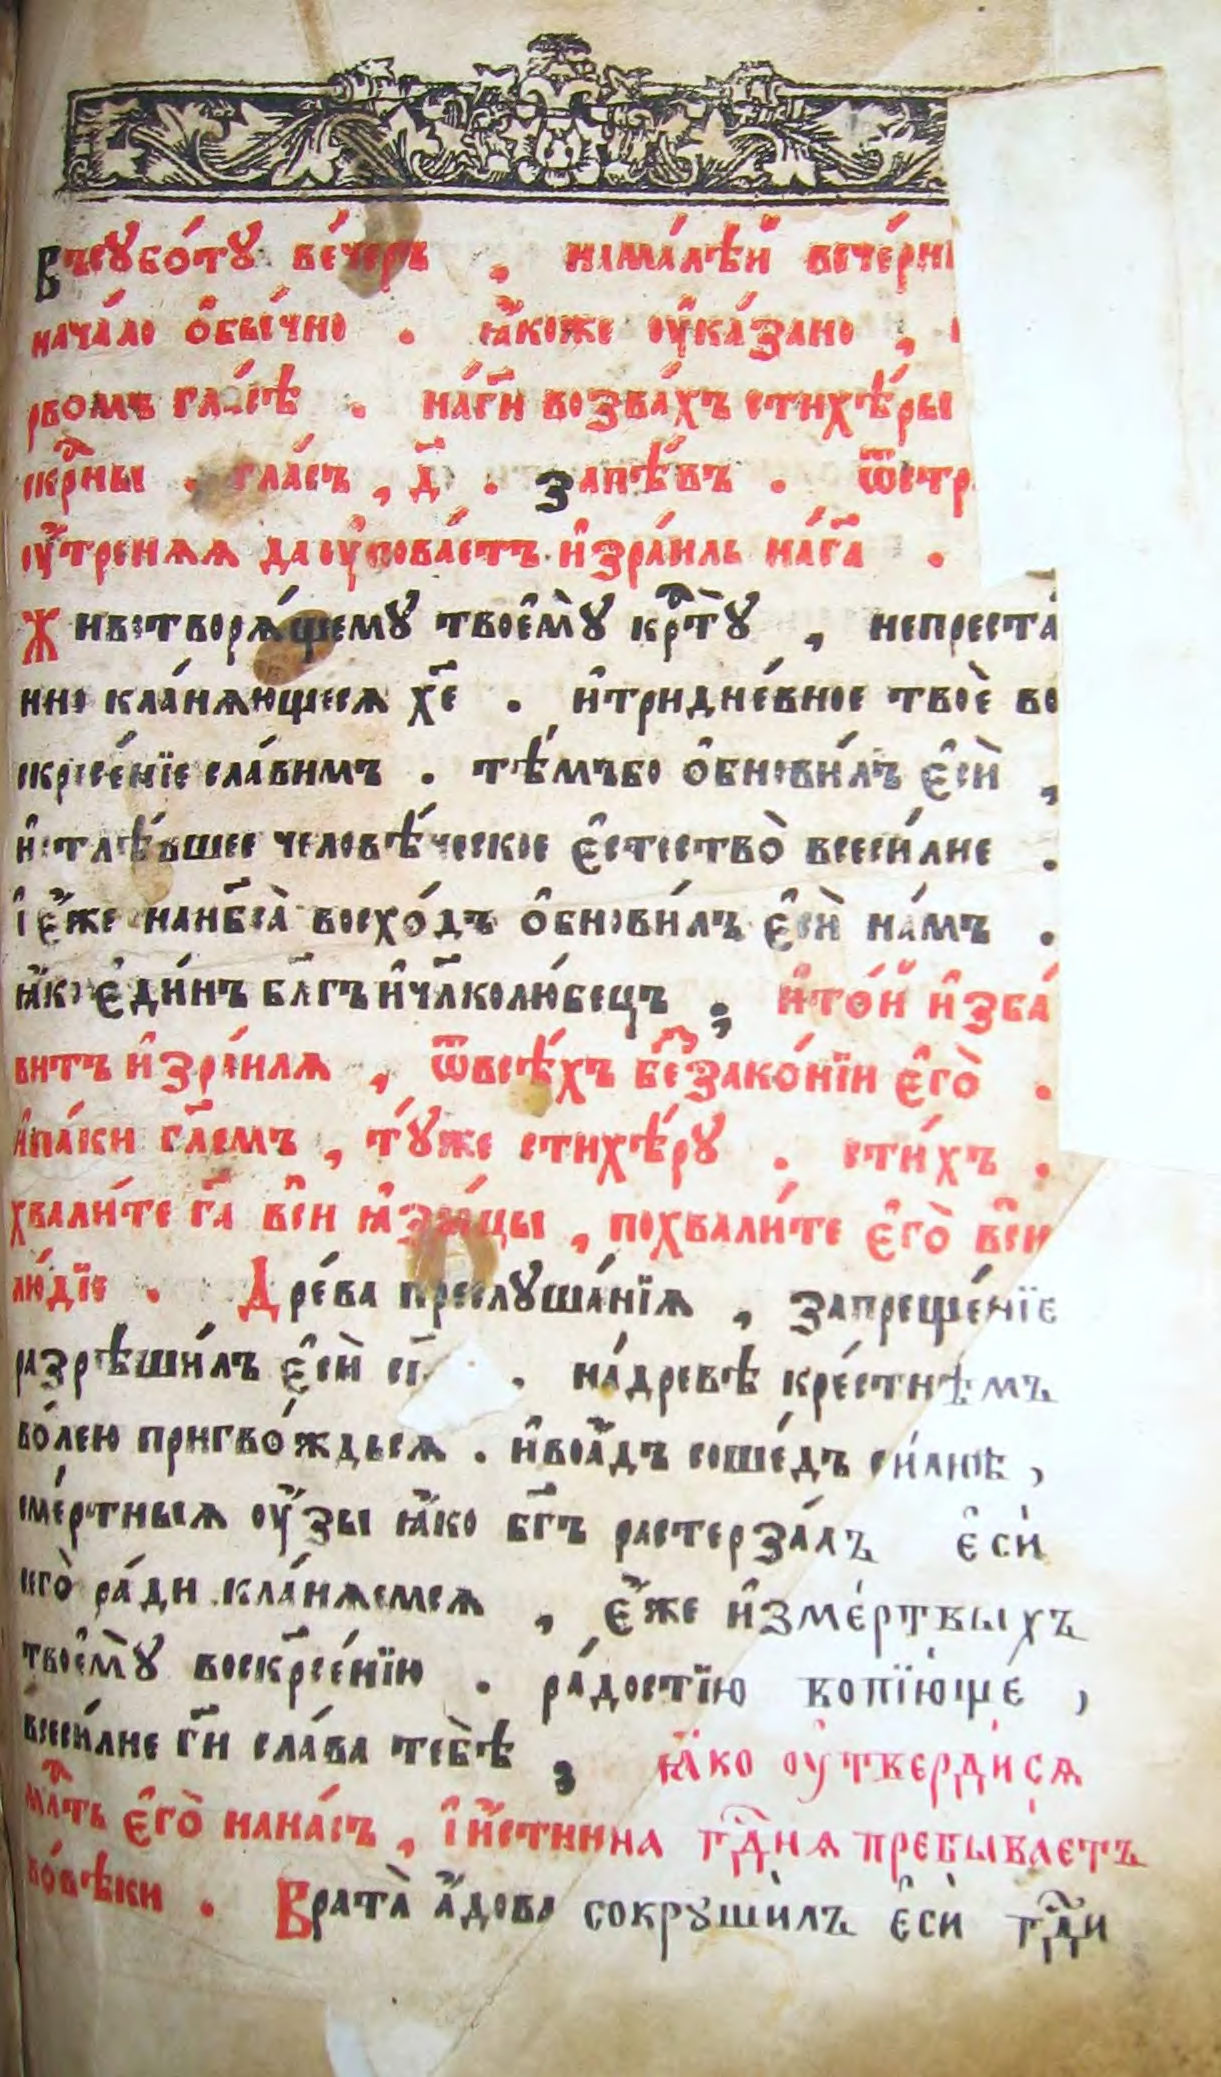 Въсꙋбо́тꙋ ве́черъ , нама́лѣй вече́рни
нача́ло ѻ҆бы́чно . ꙗ҆́коже ᲂу҆ка́зано ,
рвомъ гла́сѣ . на́гⷭ҇и возва́хъ стихѣ́ры
скрⷭ҇ны . гла́съ , д҃ . Запѣ́въ . ѿстр
ᲂу҆́тренѧѧ даᲂу҆пова́етъ и҆зра́иль на́гⷭ҇а .
Животворѧ́щемꙋ твоемꙋ̀ крⷭ҇тꙋ̀ , непреста́
нно кла́нѧющесѧ хе҃ . и҆тридне́вное твоѐ во
скрⷭ҇се́нїе сла́вимъ . тѣ́мъбо ѻ҆бнови́лъ є҆сѝ ,
и҆стлѣ́вшее человѣ́ческое є҆стество̀ всеси́лне .
і҆є҆́же нанб҃са̀ восхо́дъ ѻ҆бнови́лъ є҆сѝ на́мъ .
ꙗ҆́ко є҆ди́нъ бл҃гъ и҆чл҃колю́бецъ , и҆то́й и҆зба́
витъ и҆зра́илѧ , ѿвсѣ́хъ беззако́нїи є҆го̀ .
и҆па́ки гл҃емъ , тꙋ́же стихѣ́рꙋ . сти́хъ .
хвали́те гⷭ҇а всѝ ꙗ҆зы́цы , похвали́те є҆го̀ всѝ
лю́дїе . Дре́ва преслꙋша́нїѧ , запреще́нїе
разрѣши́лъ є҆сѝ . на́древѣ кре́стнѣмъ
во́лею пригво́ждьсѧ . и҆воа́дъ соше́дъ си́лнѣ ,
сме́ртныѧ ᲂу҆́зы ꙗ҆́ко бг҃ъ растерза́лъ є҆сѝ
сего̀ ра́ди кла́нѧемсѧ , є҆́же и҆зме́ртвыхъ
твоемꙋ̀ воскрⷭ҇се́нїю . ра́достїю вопїю́ще ,
всеси́лне гⷭ҇и сла́ва тебѣ̀ , ꙗ҆́ко ᲂу҆тверди́сѧ
млⷭ҇ть є҆го̀ нана́съ , і҆и҆́стинна гдⷭ҇нѧ пребыва́етъ
во́вѣки . Врата̀ а҆́дова сокрꙋши́лъ є҆сѝ гдⷭ҇и